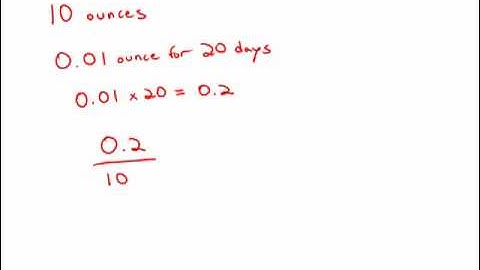 10 ounces
0.01 ounce for 20 days
0.01 × 20 = 0.2
0.2
10